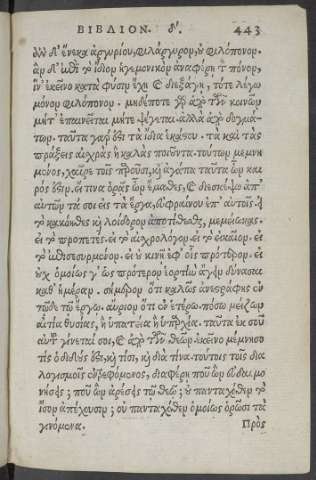 ΒΙΒΛΙΟΝ. δ'. 443
δῶ δ' ἕνεκα ἀργυρίου, φιλάργυρον, οὐ φιλόπονον.
ἂν δ' ἐπὶ τὸ ἴδιον ἡγεμονικὸν ἀναφέρῃ τὸν πόνον,
ἵν' ἐκεῖνο κατὰ φύσιν ἔχῃ καὶ διεξάγῃ, τότε λέγω
μόνον φιλόπονον. μηδέποτε γὰρ ἀπὸ τῶν κοινῶν
μήτ' ἐπαινεῖται μήτε ψέγεται. ἀλλὰ ἀπὸ δογμά-
των. ταῦτα γάρ ὅτι τὰ ἴδια ἑκάστου. τὰ καὶ τὰς
πράξεις αἰσχρὰς ἢ καλὰς ποιοῦντα. τούτων μεμνη
μένος, χαῖρε τοῖς παροῦσι, καὶ ἀγάπα ταῦτα ὧν και
ρός ὅτιν. εἴ τινα ὁρᾷς ὧν ἔμαθες, καὶ διεσκέψω ἀπ'
αυτῶν τά σοι εἰς τὰ ἔργα, εὐφραίνου ἐπ' αὐτοῖς. εἰ
τὸ κακόηθες καὶ λοίδορον ἀποτέθεισαι, μεμείωκας.
εἰ τὸ προπετές. εἰ τὸ αἰσχρολόγον. εἰ τὸ εἰκαῖον. εἰ
τὸ ἐπισεσυρμένον. εἰ οὐ κινῇ ἐφ' οἷς πρότερον. εἰ
οὐχ ὁμοίως γ' ὡς πρότερον ἑορτὴν ἄγειν δύνασαι
καθ' ἡμέραν. σήμερον ὅτι καλῶς ἀνεστράφης ἐν
τῷδε τῷ ἔργῳ. αὔριον ὅτι ἐν ἑτέρῳ. πόσῳ μείζων
αἰτία θυσίας, ἢ ὑπατεία ἢ ὑπαρχία. ταῦτα ἐκ σοῦ
αὐτοῦ γίνεταί σοι, καὶ ἀπὸ τῶν θεῶν. ἐκεῖνο μέμνησο
τίς ὁ διδούς ὅτι, καὶ τίσι, καὶ διὰ τίνα. τούτοις τοῖς δια
λογισμοῖς ἐντρεφόμενος, διαφέρῃ ποῦ ὢν εὐδαιμο
νήσεις; ποῦ ὢν ἀρέσεις τῷ θεῷ; οὐ πανταχόθεν τὸ
ἴσον ἀπέχουσιν; οὐ πανταχόθεν ὁμοίως ὁρῶσι τὰ
γινόμενα.
Πρὸς